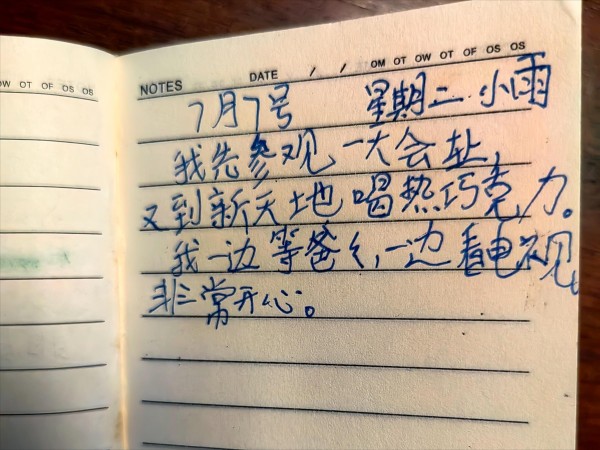 OW OT OF OS OS
NOTES DATE / / OM OT OW OT OF OS OS
7月7号 星期二 小雨
我先参观一大会址,
又到新天地喝热巧克力。
我一边等爸〻,一边看电视,
非常开心。